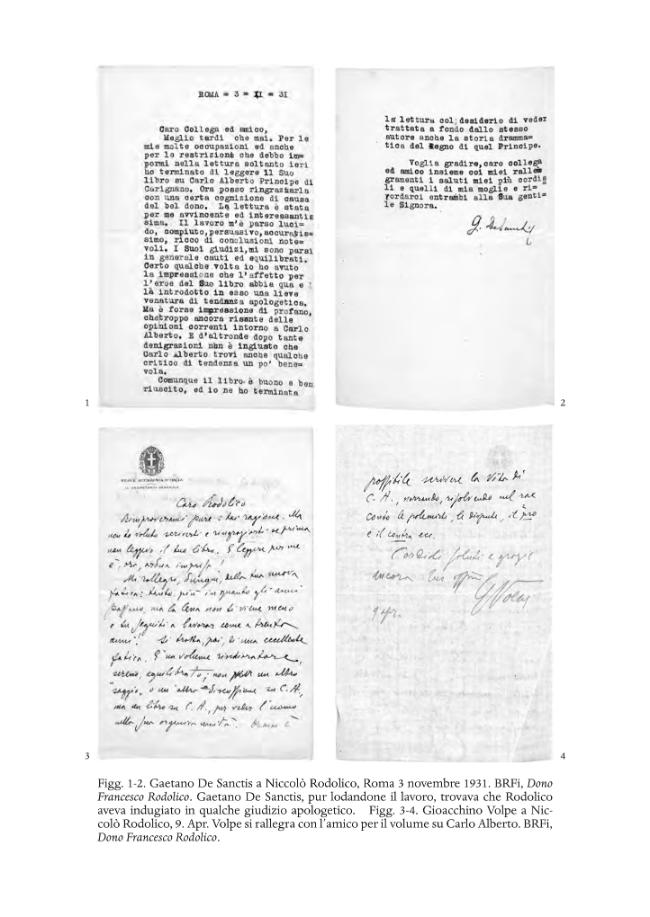 ROMA = 3 = XI = 31
Caro Collega ed amico,
Meglio tardi che mai. Per le
mie molte occupazioni ed anche
per le restrizioni che debbo im=
pormi nella lettura soltanto ieri
ho terminato di leggere il Suo
libro su Carlo Alberto Principe di
Carignano. Ora posso ringraziarla
con una certa cognizione di causa
del bel dono. La lettura è stata
per me avvincente ed interessantis
sima. Il lavoro m'è parso luci=
do, compiuto, persuasivo, accuratis=
simo, ricco di conclusioni note=
voli. I Suoi giudizi, mi sono parsi
in generale cauti ed equilibrati.
Certo qualche volta io ho avuto
la impressione che l'affetto per
l'eroe del Suo libro abbia qua e
là introdotto in esso una lieve
venatura di tendenza apologetica.
Ma è forse impressione di profano,
che troppo ancora risente delle
opinioni correnti intorno a Carlo
Alberto. E d'altronde dopo tante
denigrazioni non è ingiusto che
Carlo Alberto trovi anche qualche
critico di tendenza un po' bene=
vola.
Comunque il libro è buono e ben
riuscito, ed io ne ho terminata
1
la lettura col desiderio di veder
trattata a fondo dallo stesso
autore anche la storia dramma=
tica del Regno di quel Principe.
Voglia gradire, caro collega
ed amico insieme coi miei ralle=
gramenti i saluti miei più cordia
li e quelli di mia moglie e ri=
cordarci entrambi alla Sua genti=
le Signora.
G. De Sanctis
2
REALE ACCADEMIA D'ITALIA
Caro Rodolico
Rimproverami pure: hai ragione. Ma
non ho voluto scriverti e ringraziarti se prima
non leggevo il tuo libro. E leggere per me
è, ora, ardua impresa!
Mi rallegro, dunque, della tua nuova
fatica: tanto più in quanto gli anni
passano, ma la lena non ti viene meno
e tu seguiti a lavorar come a trenta
anni! Si tratta, poi, di una eccellente
fatica. È un volume
sereno, equilibrato; non un altro
saggio, o un altro su C. A.,
ma un libro su C. A., per veder l'uomo
nella sua unità.
3
possibile scrivere la Vita di
C. A., narrando, risolvendo nel rac
conto le polemiche, le dispute, il pro
e il contra ecc.
Cordiali saluti e grazie
ancora tuo
G Volpe
9 apr.
4
Figg. 1-2. Gaetano De Sanctis a Niccolò Rodolico, Roma 3 novembre 1931. BRFi, Dono
Francesco Rodolico. Gaetano De Sanctis, pur lodandone il lavoro, trovava che Rodolico
aveva indugiato in qualche giudizio apologetico. Figg. 3-4. Gioacchino Volpe a Nic-
colò Rodolico, 9. Apr. Volpe si rallegra con l'amico per il volume su Carlo Alberto. BRFi,
Dono Francesco Rodolico.